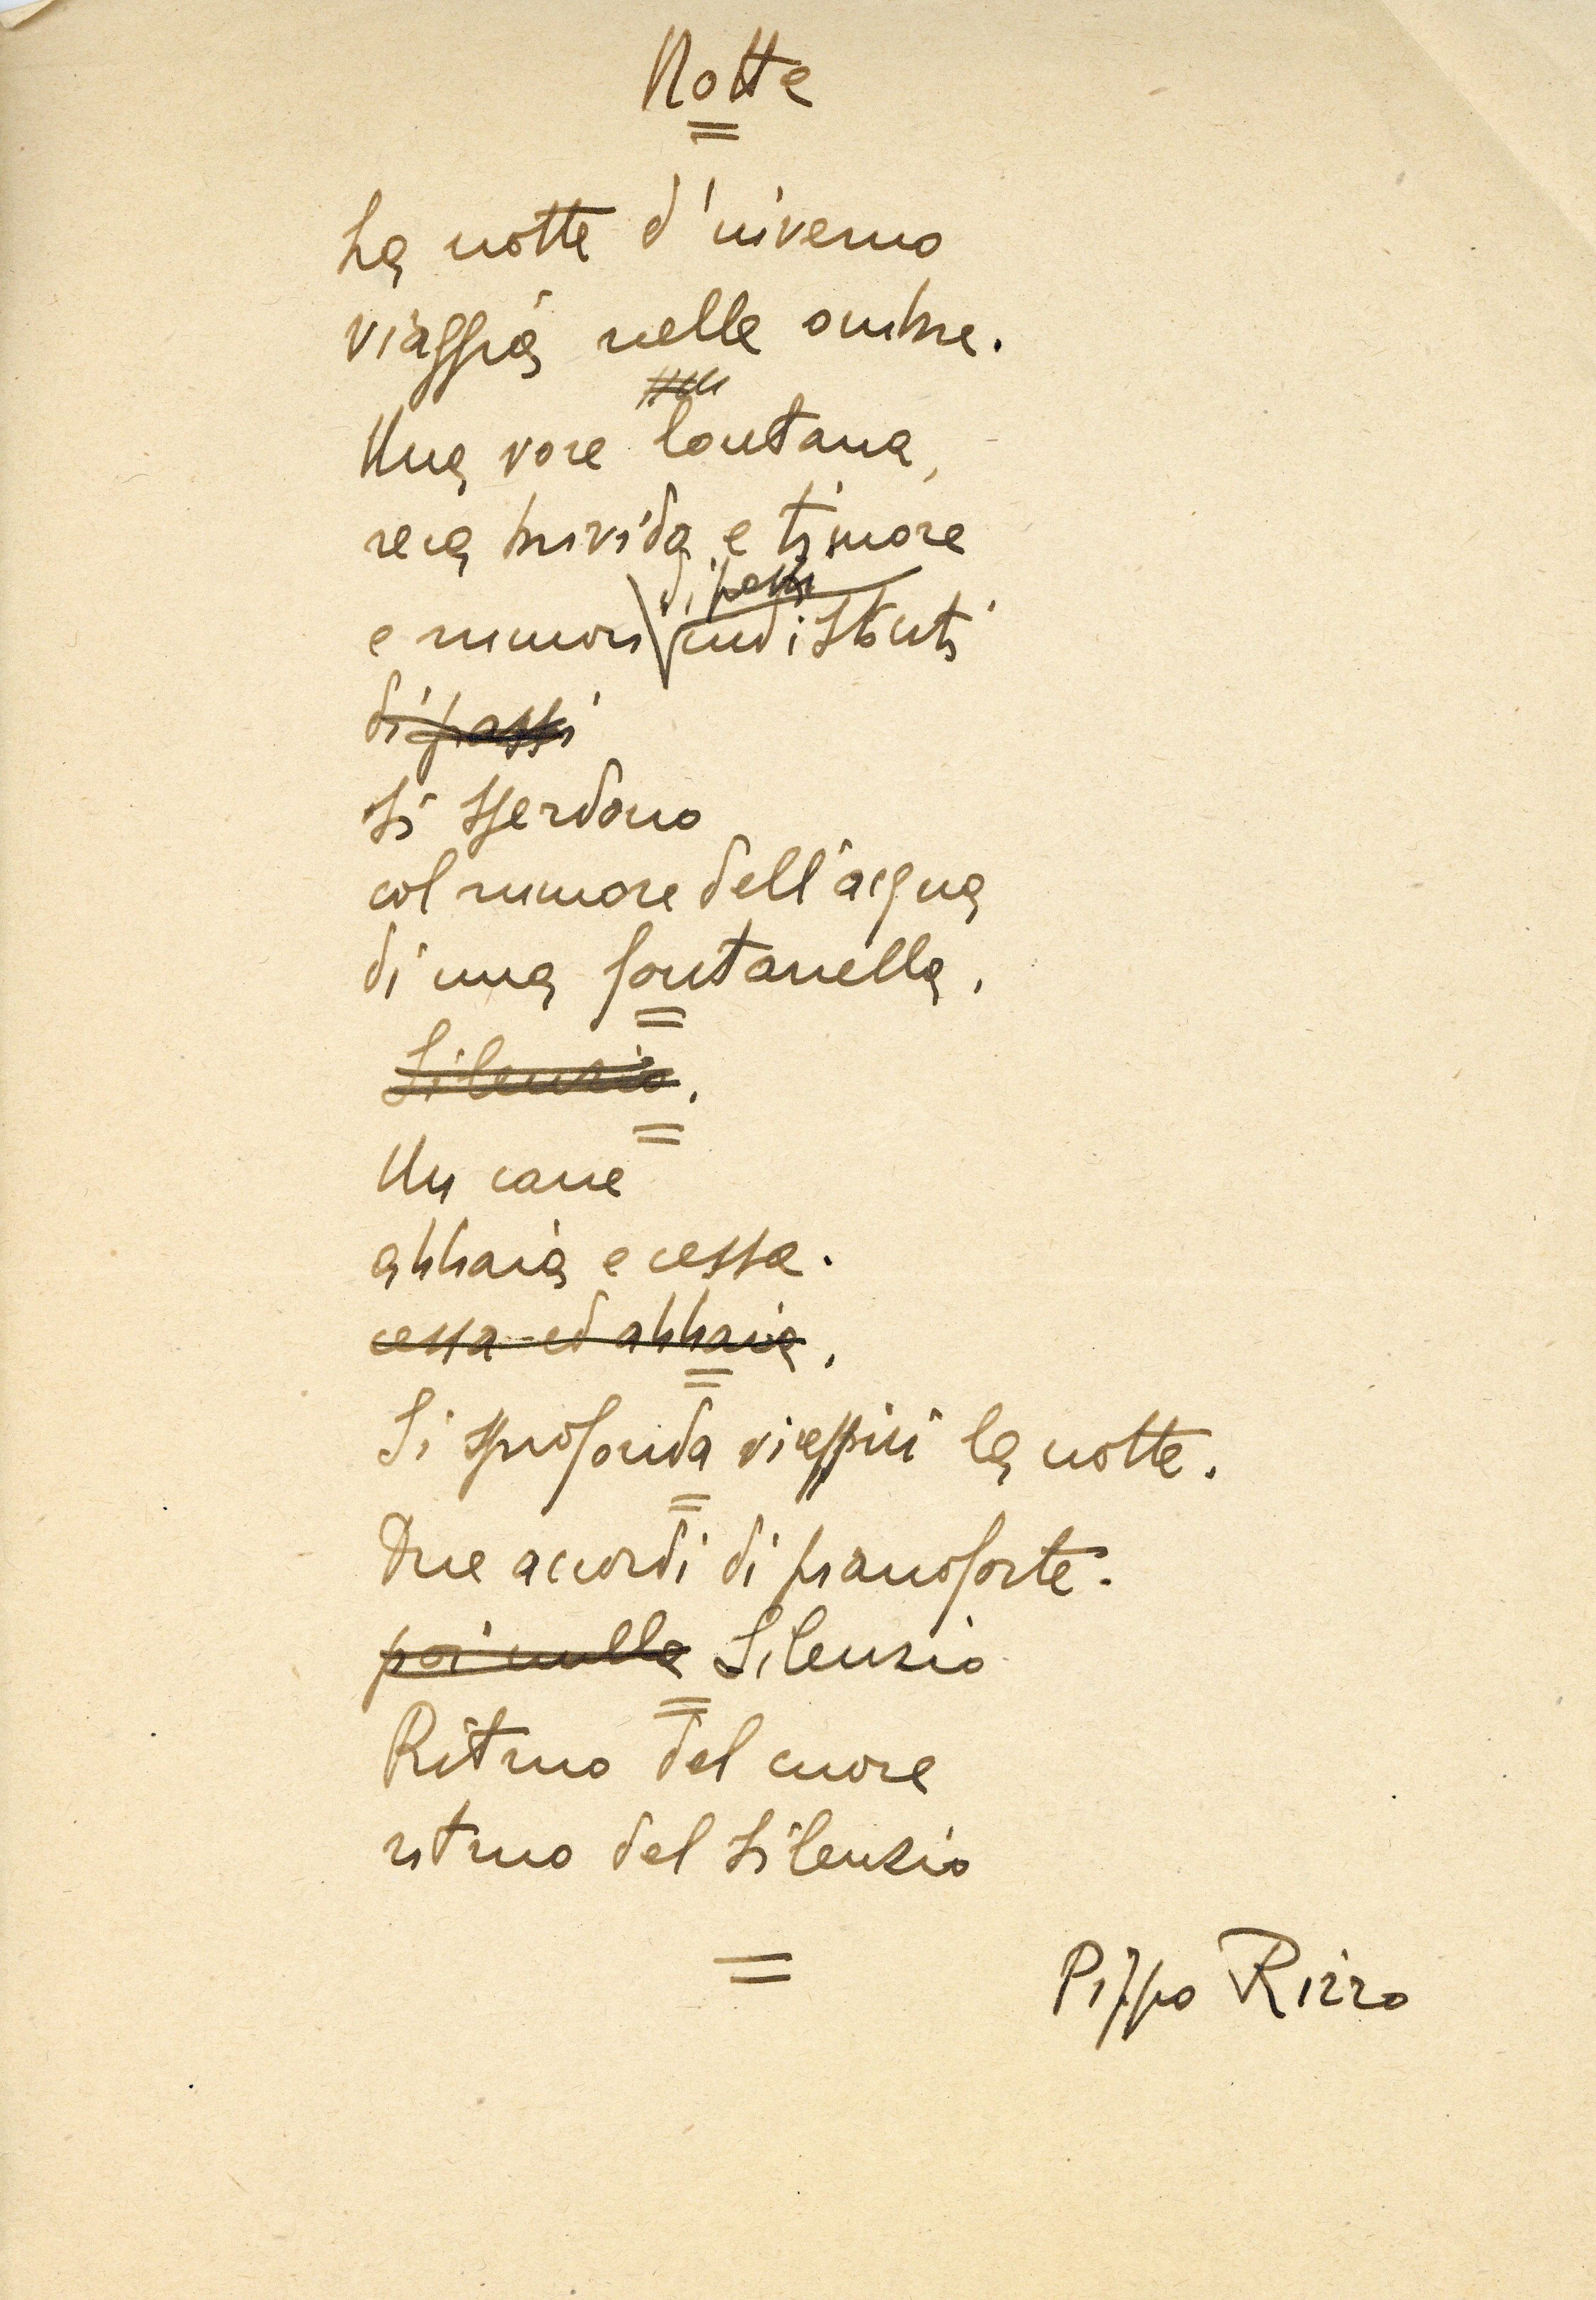 Notte
La notte d'inverno
viaggia nelle ombre.
Una voce lontana,
reca brivida e timore
di passi
e rumori indistinti
di passi
si sperdono
col rumore dell'acqua
di una fontanella.
Silenzio.
Un cane
abbaia e cessa.
cessa ed abbaia.
Si sprofonda vieppiù la notte.
Due accordi di pianoforte.
poi nulla Silenzio
Ritmo del cuore
ritmo del silenzio
Pippo Rizzo